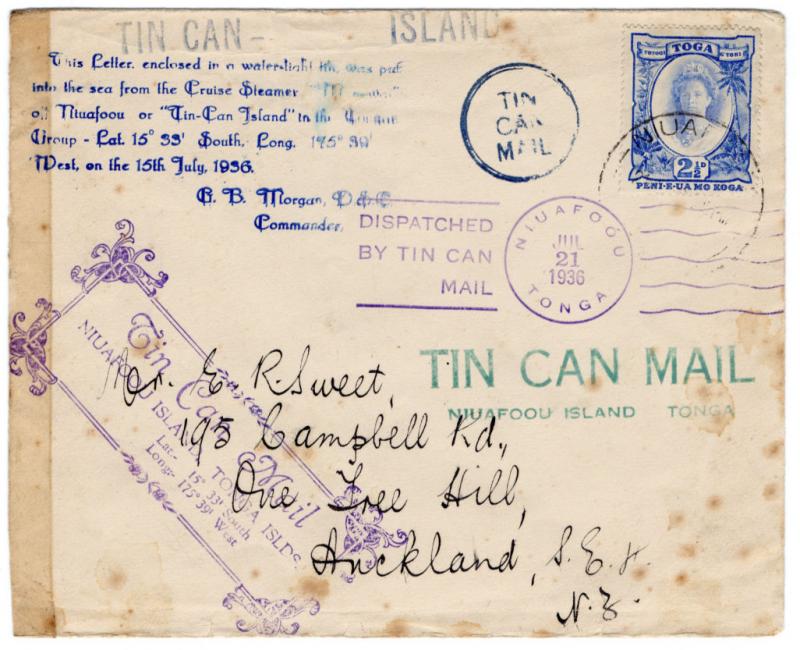 TIN CAN - ISLAND
This Letter, enclosed in a water-tight tin, was put
into the sea from the Cruise Steamer
off Niuafoou or "Tin-Can Island" in the
Group - Lat. 15° 33' South, Long. 175° 39'
West, on the 15th July, 1936.
G. B. Morgan,
Commander,
TIN
CAN
MAIL
TOTOGI TOGA
2½D
PENI-E-UA MO KOGA
NIUAF
DISPATCHED
BY TIN CAN
MAIL
NIUAFOOU
JUL
21
1936
TONGA
TIN CAN MAIL
NIUAFOOU ISLAND TONGA
Tin Can Mail
NIUAFOOU ISLAND, TONGA ISLDS
Lat.- 15° 33' South
Long- 175° 39' West
Mr. E. R. Sweet,
195 Campbell Rd.,
One Tree Hill,
Auckland, S.E.
N.Z.